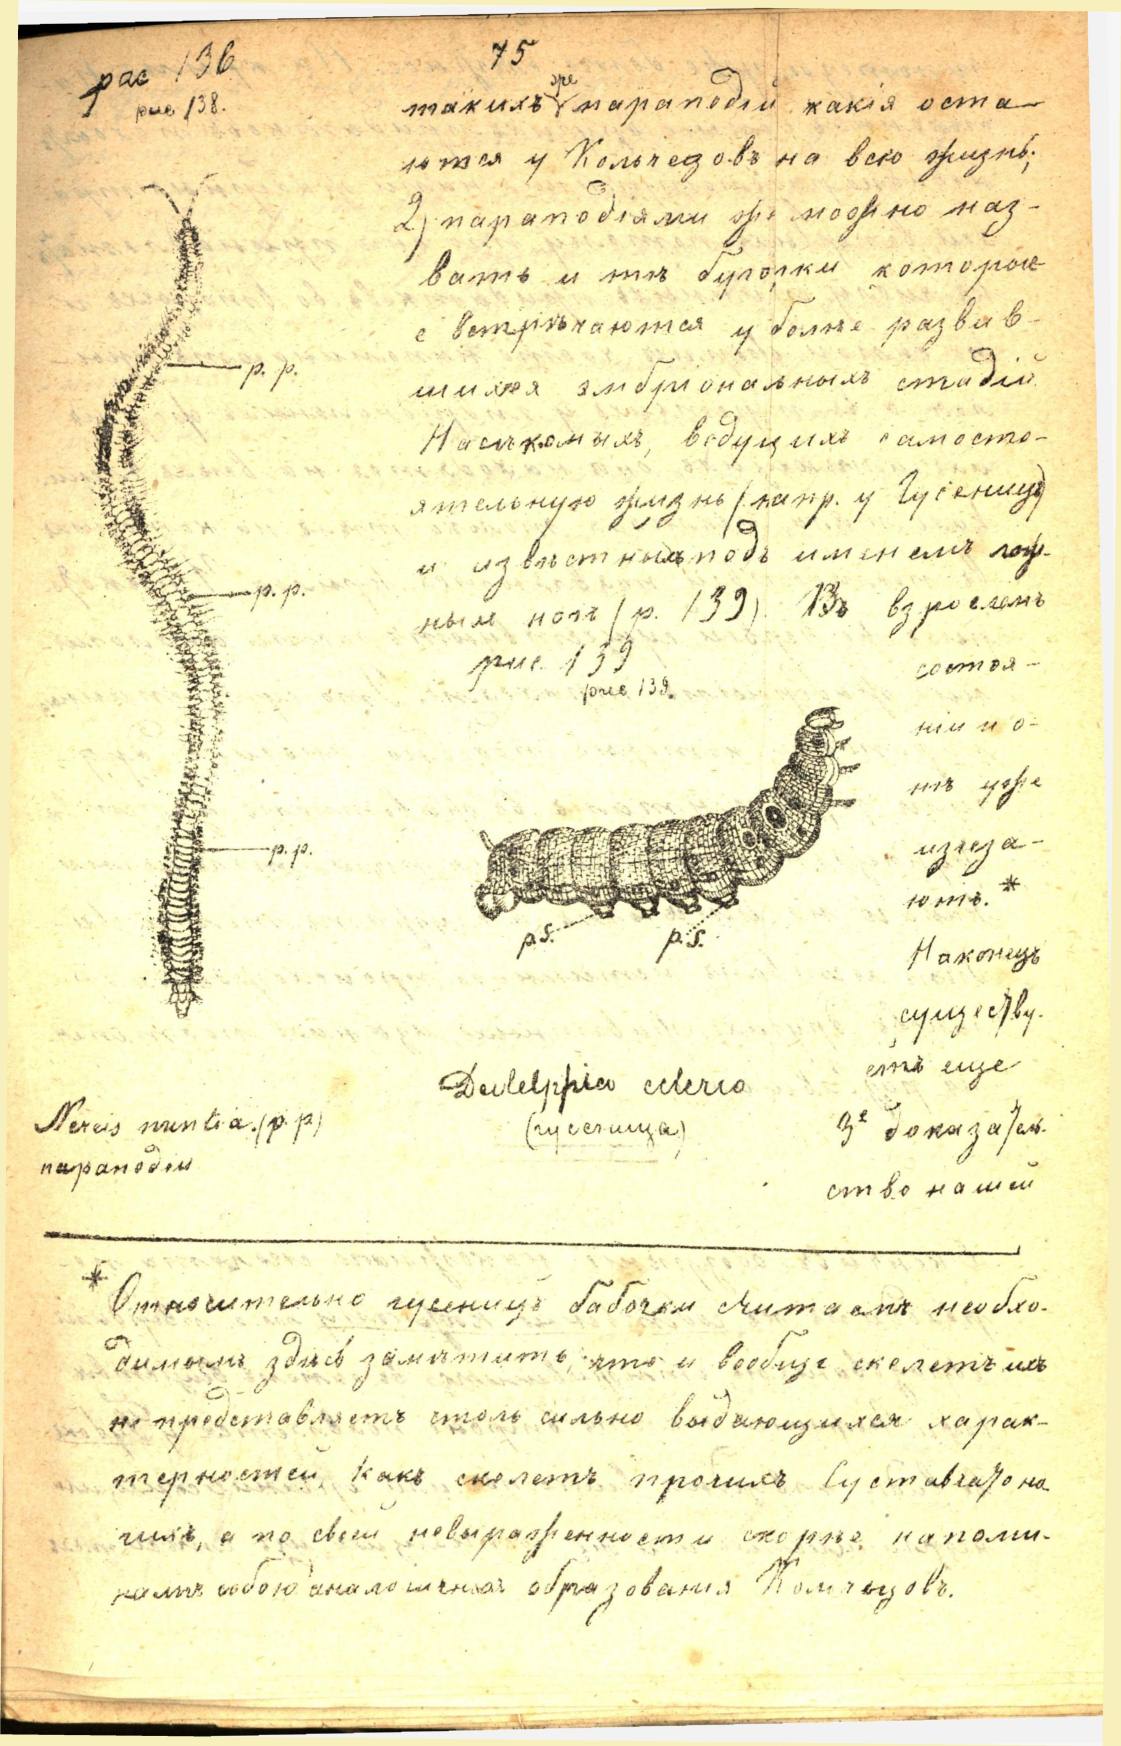 75
рас 138
рис 138.
такихъ же параподій какія оста-
ются у Кольчецовъ на всю жизнь;
2) параподіями же можно наз-
вать и тѣ бугорки которые
встрѣчаются у болѣе развив-
шихся эмбріональныхъ стадій
Насѣкомыхъ, ведущихъ самосто-
ятельную жизнь (напр. у Гусеницъ)
и извѣстныхъ подъ именемъ лож-
ныхъ ногъ (р. 139). Въ взросломъ
состоя-
ніи и о-
нѣ уже
изчеза-
ютъ.*
Наконецъ
существу-
етъ еще
3е доказатель-
ство нашей
р. р.
р. р.
р. р.
Nereis nuntia. (р. р)
параподіи
рис 139
рис 139.
p.s.
p.s.
(гусеница)
* Относительно гусеницъ бабочки считаемъ необхо-
димымъ здѣсь замѣтить, что и вообще скелетъ ихъ
не представляетъ столь сильно выдающихся харак-
терностей, какъ скелетъ прочихъ Суставчатоно-
гихъ, а по своей невыраженности скорѣе напоми-
наетъ собою аналогичныя образованія Кольчецовъ.